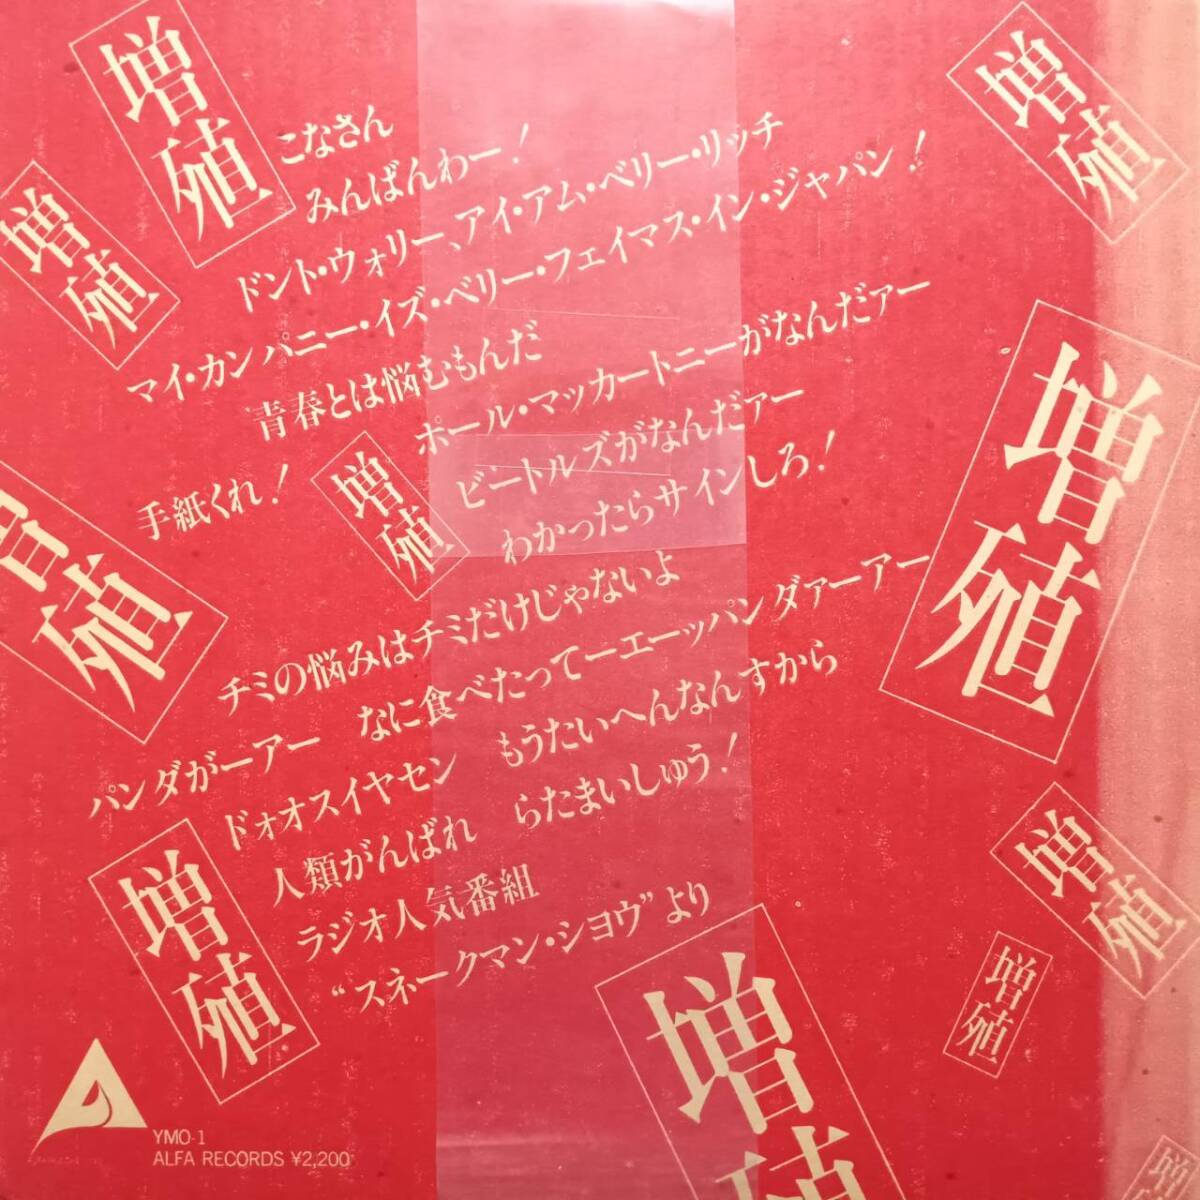 増殖
増殖
増殖
こなさん
みんばんわー!
ドント・ウォリー、アイ・アム・ベリー・リッチ
マイ・カンパニー・イズ・ベリー・フェイマス・イン・ジャパン!
青春とは悩むもんだ
ポール・マッカートニーがなんだァー
手紙くれ!
増殖
ビートルズがなんだァー
わかったらサインしろ!
増殖
増殖
チミの悩みはチミだけじゃないよ
なに食べたってーエーッパンダァーアー
パンダがーアー
もうたいへんなんすから
ドォオスイヤセン
らたまいしゅう!
人類がんばれ
ラジオ人気番組
“スネークマン・ショウ”より
増殖
増殖
増殖
増殖
増
YMO-1
ALFA RECORDS ¥2,200